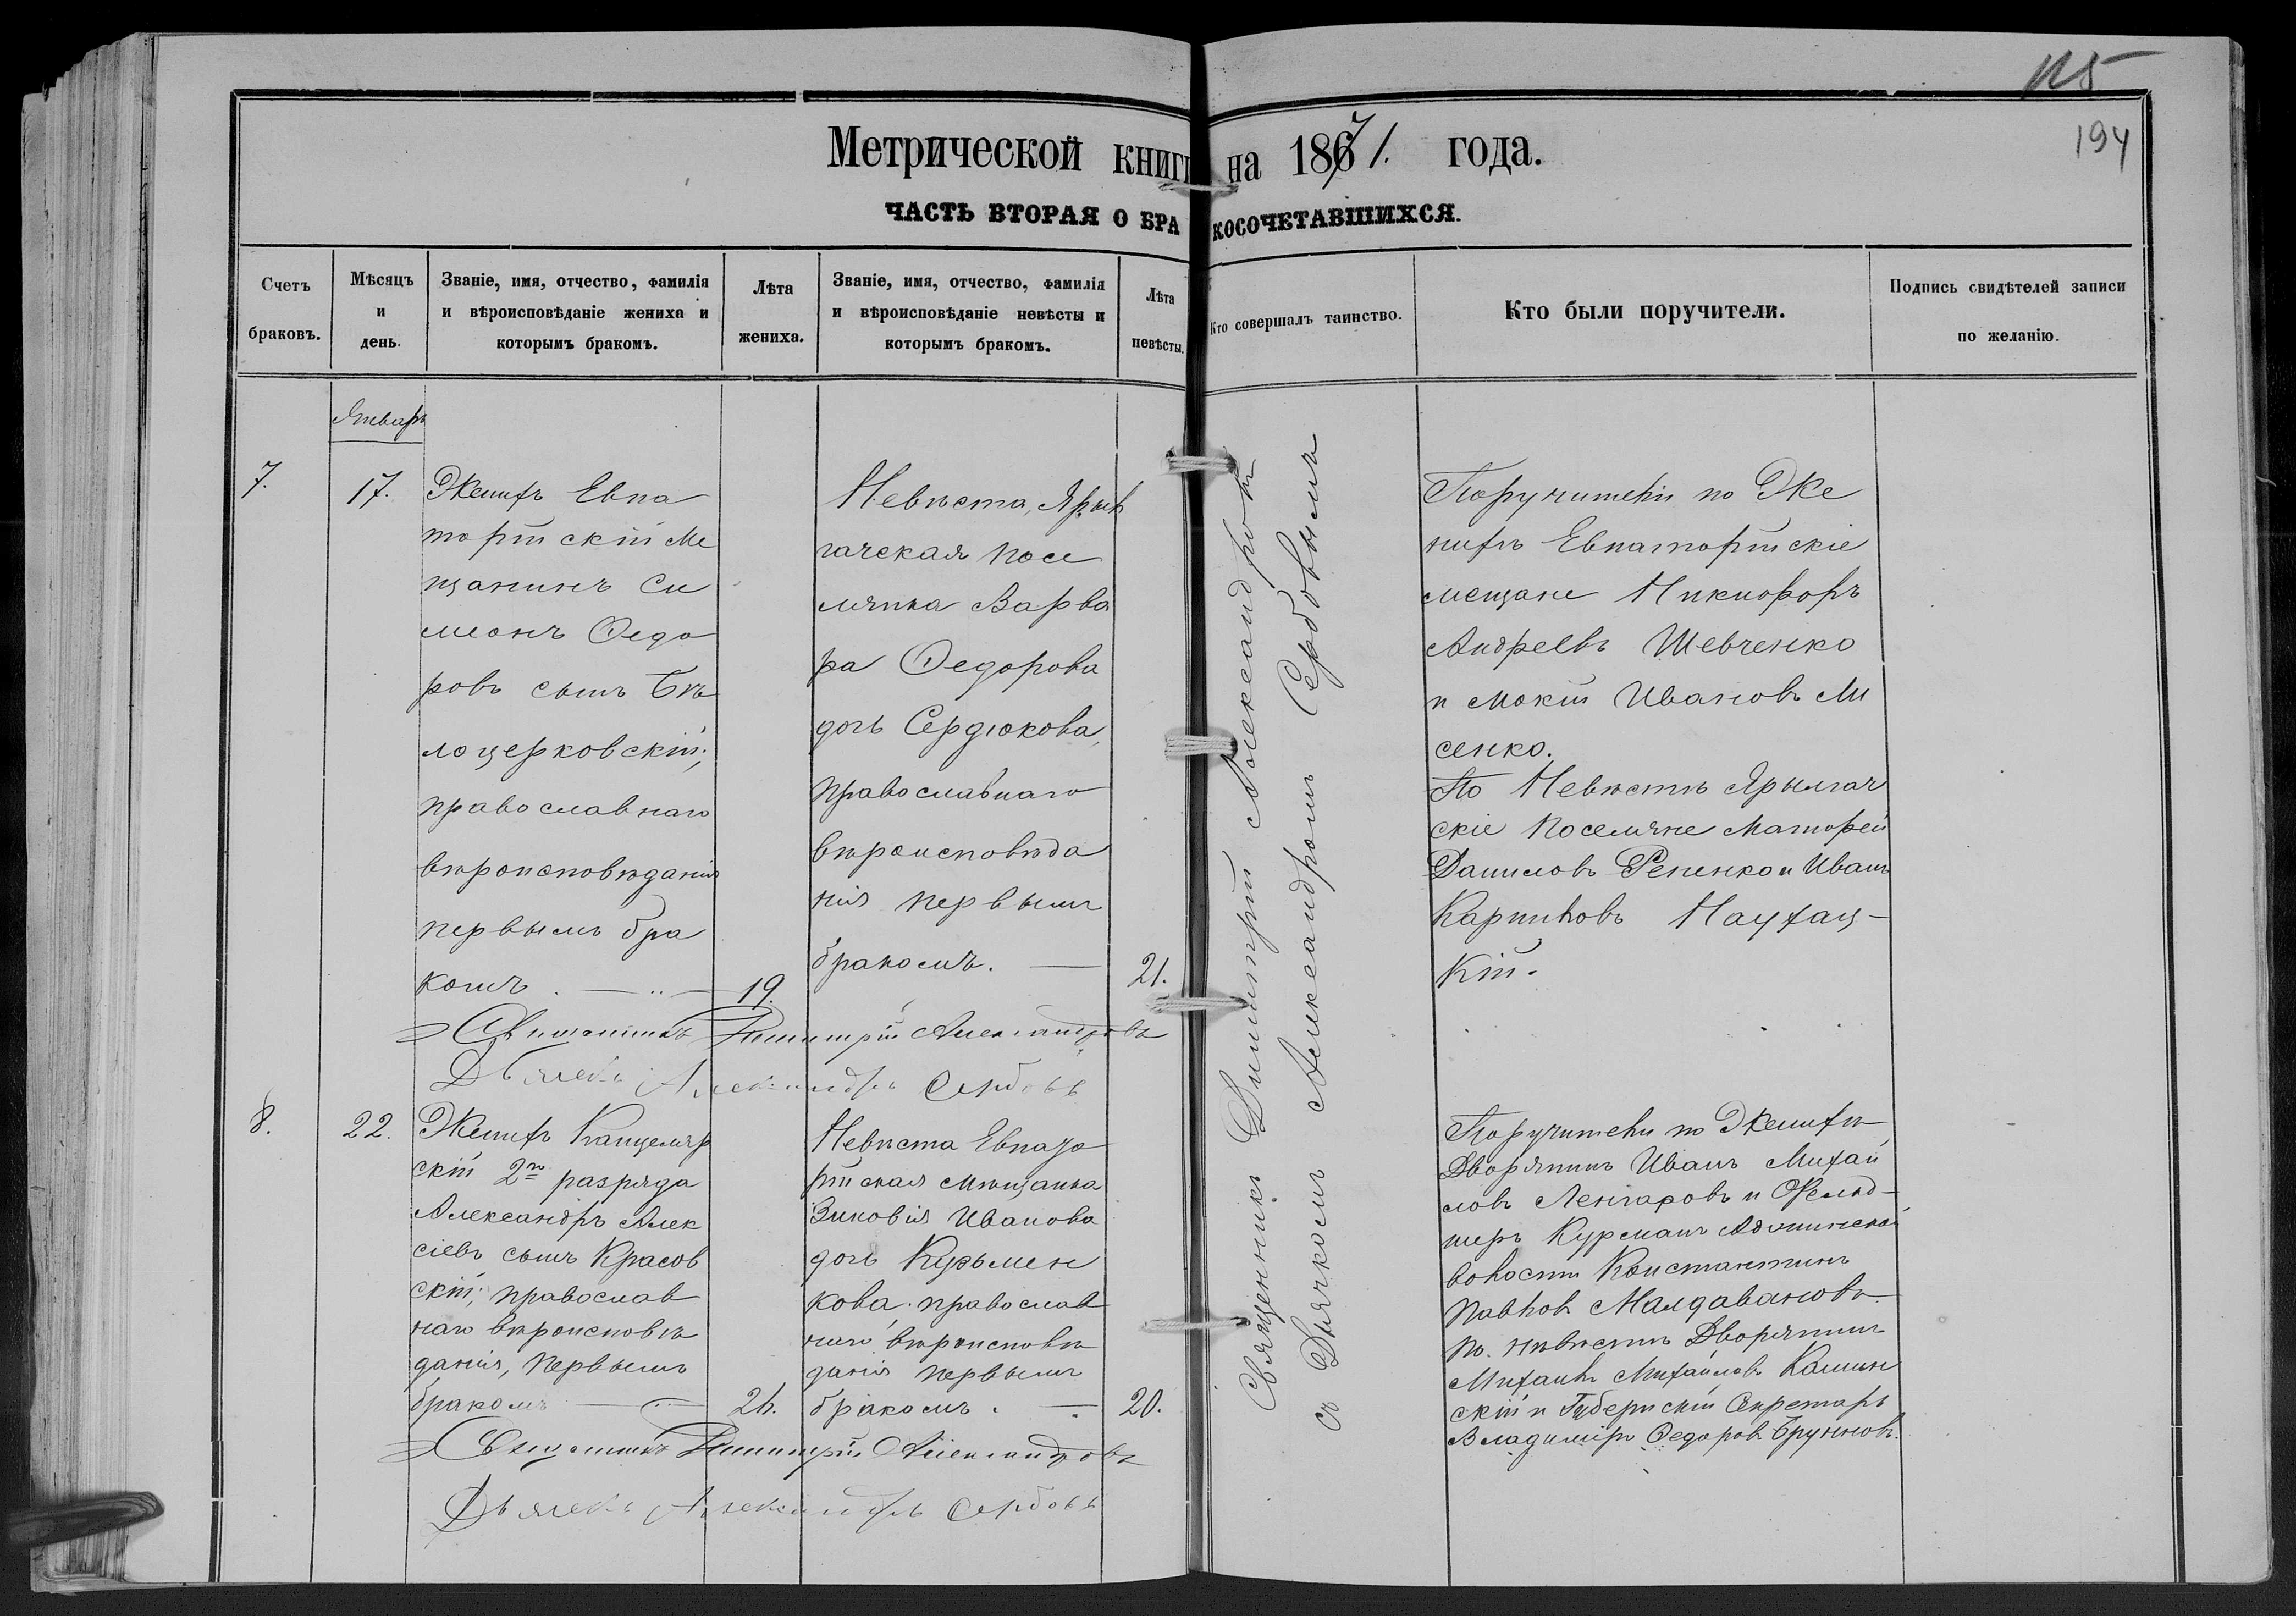 194
Метрической книги на 1871. года.
ЧАСТЬ ВТОРАЯ О БРАКОСОЧЕТАВШИХСЯ.
Счетъ браковъ.
Мѣсяцъ и день.
Званіе, имя, отчество, фамилія и вѣроисповѣданіе жениха и которымъ бракомъ.
Лѣта жениха.
Званіе, имя, отчество, фамилія и вѣроисповѣданіе невѣсты и которымъ бракомъ.
Лѣта невѣсты.
Кто совершалъ таинство.
Кто были поручители.
Подпись свидѣтелей записи по желанію.
Январь
7.
17.
Женихъ Евпа
торійскій Ме
щанинъ Си
меонъ Ѳедо
ровъ сынъ Бѣ
лоцерковскій;
православнаго
вѣроисповѣданія
первымъ бра
комъ. — 19.
Невѣста, Ярыл
гачская посе
лянка Варва
ра Ѳедорова
дочь Сердюкова,
православнаго
вѣроисповѣда
нія первымъ
бракомъ. — 21.
Священникъ Димитрій Александровъ
съ Дьячкомъ Александромъ Сербовымъ
Поручители по Же
нихѣ Евпаторійскіе
мещане Никифоръ
Андреевъ Шевченко
и Мокій Ивановъ Ми
сенко.
По Невѣстѣ Ярылгач
скіе Поселяне Матфей
Даниловъ Репенко и Иванъ
Карповъ
кій.
Священникъ Димитрій Александровъ
Дьячекъ Александръ Сербовъ
8.
22.
Женихъ Канцеляр
скій 2го разряда
Александръ Алек
сіевъ сынъ Красов
скій; православ
наго вѣроисповѣ
данія, первымъ
бракомъ —
Невѣста Евпато
рійская мѣщанка
Зиновія Иванова
дочь Кузьмен
кова. православ
наго вѣроисповѣ
данія первымъ
бракомъ. — 20.
Поручители по Женихѣ
Дворянинъ Иванъ Михай
ловъ и Фельд-
шеръ Курманъ Аджинской
волости Константинъ
Павловъ Малдавановъ.
По. нѣвѣстѣ Дворянинъ
Михаилъ Михайловъ Камин
скій и Губернскій Секретарь
Владиміръ Ѳедоровъ Бруннов.
Священникъ Димитрій Александровъ
Дьячекъ Александръ Сербовъ